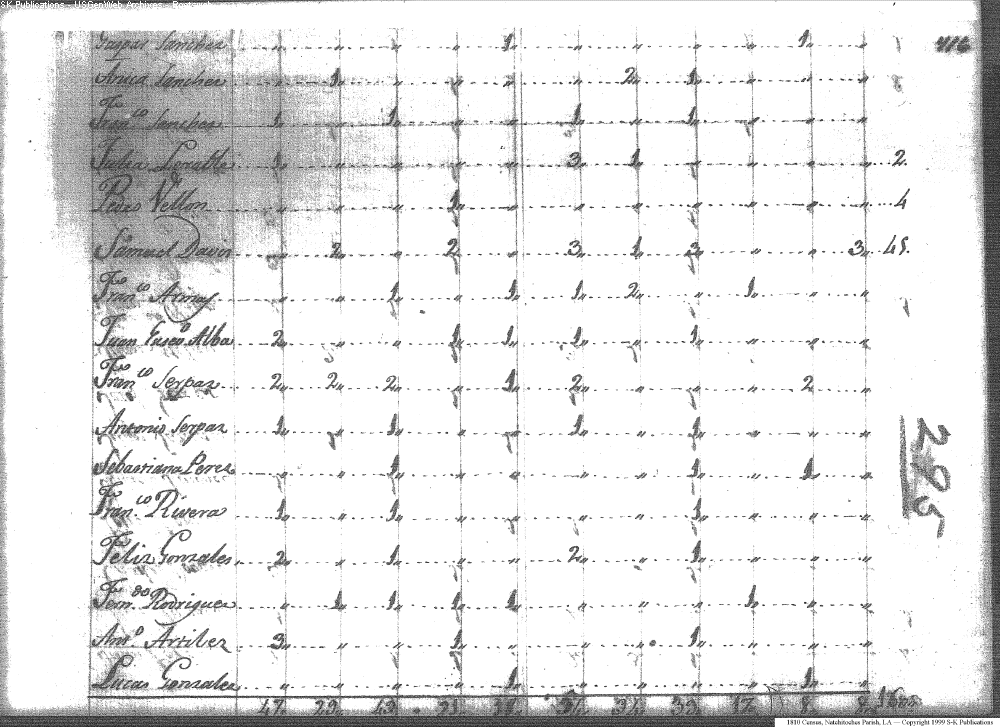 SK Publications - USGenWeb Archives -
Gaspar Sanchez „ „ „ „ 1„ „ „ „ „ 1„ „ 416
Anica Sanchez „ 1„ „ „ „ „ 2„ 1„ „ „ „
Fran.co Sanchez 1„ „ 1„ „ „ 1„ „ 1„ „ „ „
Julia 1„ „ „ „ „ 3„ 1„ „ „ „ „ 2.
Pedro Vellon „ „ „ 1„ „ „ „ „ „ „ „ 4
Samuel Davis „ 2„ „ 2„ „ 3„ 1„ 3„ „ „ 3„ 45.
Fran.co „ „ 1„ „ 1„ 1„ 2„ „ 1„ „ „
Juan Alba 2„ „ „ 1„ 1„ 1„ „ 1„ „ „ „
Fran.co Serpas 2„ 2„ 2„ „ 1„ 2„ „ „ „ 2„ „
Antonio Serpas 1„ „ 1„ „ „ 1„ „ 1„ „ „ „
Sebastiana Perez „ „ 1„ „ „ „ „ 1„ „ 1„ „
Fran.co Rivera 1„ „ 1„ „ „ „ „ 1„ „ „ „
Feliz Gonzales 2„ „ 1„ „ „ 2„ „ 1„ „ „ „
Fern.do Rodriguez „ 1„ 1„ 1„ 1„ „ „ „ 1„ „ „
Ant.o Artilez 3„ „ „ 1„ „ „ „ 1„ „ „ „
Lucas Gonzales „ „ „ „ 1„ „ „ „ „ 1„ „
295
1810 Census, Natchitoches Parish, LA — Copyright 1999 S-K Publications